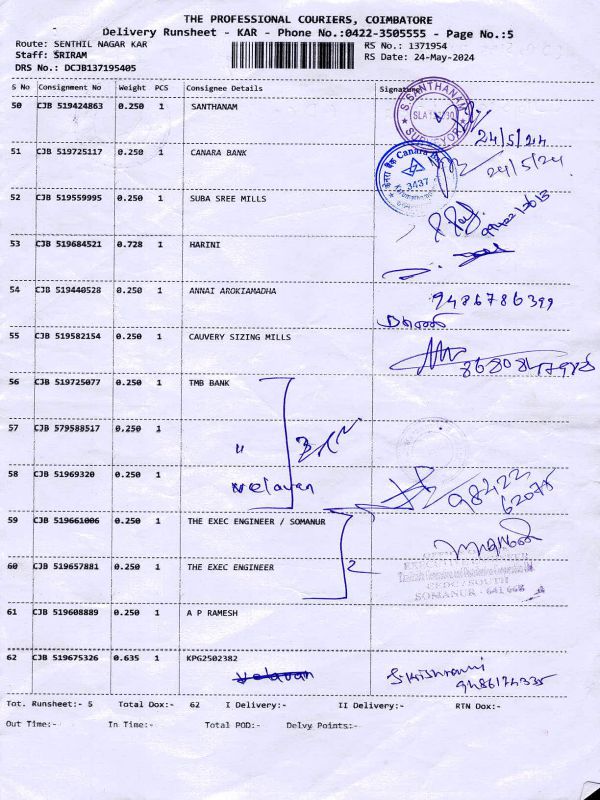 THE PROFESSIONAL COURIERS, COIMBATORE
Delivery Runsheet - KAR - Phone No.:0422-3505555 - Page No.:5
Route: SENTHIL NAGAR KAR
RS No.: 1371954
Staff: SRIRAM
RS Date: 24-May-2024
DRS No.: DCJB137195405
S No Consignment No Weight PCS Consignee Details Signature
50 CJB 519424863 0.250 1 SANTHANAM
S.SANTHANAM
SURVEYOR
24/5/24
51 CJB 519725117 0.250 1 CANARA BANK
Canara
3437
24/5/24
52 CJB 519559995 0.250 1 SUBA SREE MILLS
53 CJB 519684521 0.728 1 HARINI
54 CJB 519440528 0.250 1 ANNAI AROKIAMADHA
9486786399
55 CJB 519582154 0.250 1 CAUVERY SIZING MILLS
56 CJB 519725077 0.250 1 TMB BANK
57 CJB 579588517 0.250 1
"
58 CJB 51969320 0.250 1
velavan
98422
62075
59 CJB 519661006 0.250 1 THE EXEC ENGINEER / SOMANUR
60 CJB 519657881 0.250 1 THE EXEC ENGINEER
2
SOMANUR - 641 668
61 CJB 519608889 0.250 1 A P RAMESH
62 CJB 519675326 0.635 1 KPG2502382
velavan
9486174335
Tot. Runsheet:- 5 Total Dox:- 62 I Delivery:- II Delivery:- RTN Dox:-
Out Time:- In Time:- Total POD:- Delvy Points:-